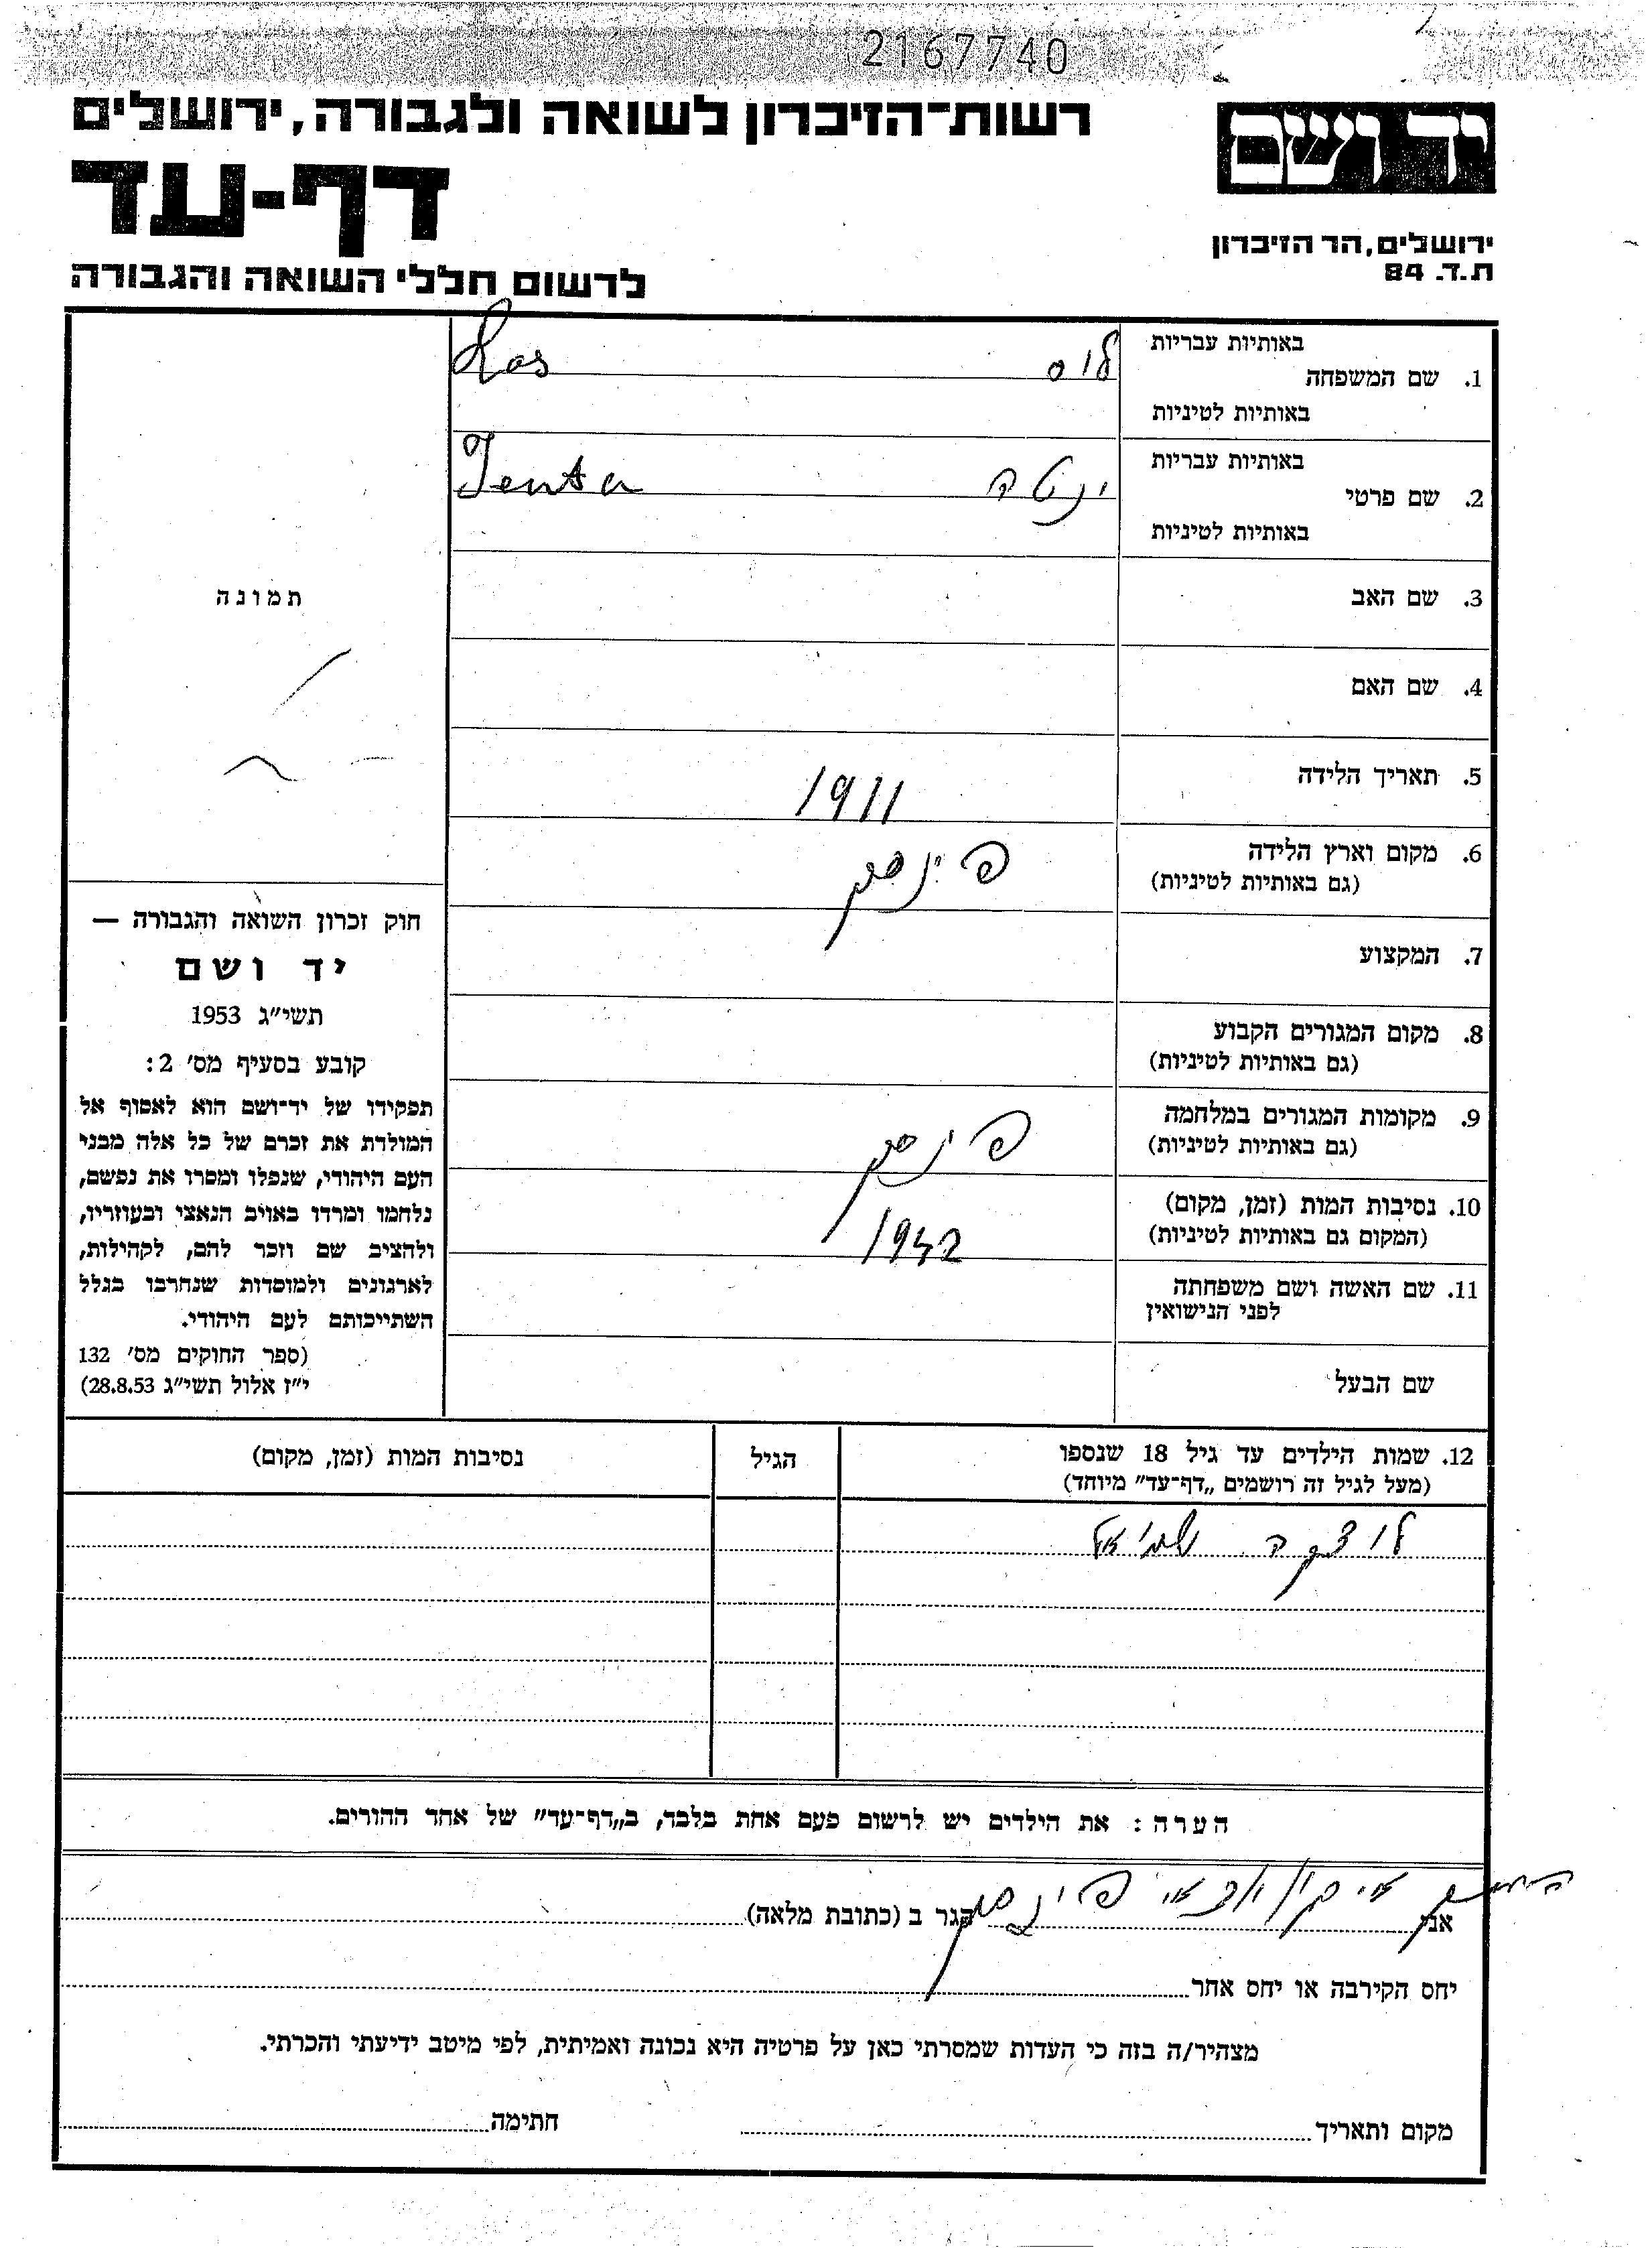 2167740
יד ושם
רשות־הזיכרון לשואה ולגבורה, ירושלים
דף-עד
ירושלים, הר הזיכרון
ת.ד. 84
לרשום חללי השואה והגבורה
באותיות עבריות
1. שם המשפחה לוס Los
באותיות לטיניות
באותיות עבריות
2. שם פרטי ינטה Jenta
באותיות לטיניות
3. שם האב
4. שם האם
5. תאריך הלידה 1911
6. מקום וארץ הלידה פינסק
(גם באותיות לטיניות)
7. המקצוע
8. מקום המגורים הקבוע
(גם באותיות לטיניות)
9. מקומות המגורים במלחמה פינסק
(גם באותיות לטיניות)
10. נסיבות המות (זמן, מקום) 1942
(המקום גם באותיות לטיניות)
11. שם האשה ושם משפחתה
לפני הנישואין
שם הבעל
תמונה
חוק זכרון השואה והגבורה —
יד ושם
תשי״ג 1953
קובע בסעיף מס׳ 2:
תפקידו של יד־ושם הוא לאסוף אל
המולדת את זכרם של כל אלה מבני
העם היהודי, שנפלו ומסרו את נפשם,
נלחמו ומרדו באויב הנאצי ובעוזריו,
ולהציב שם וזכר להם, לקהילות,
לארגונים ולמוסדות שנחרבו בגלל
השתייכותם לעם היהודי.
(ספר החוקים מס׳ 132
י״ז אלול תשי״ג 28.8.53)
12. שמות הילדים עד גיל 18 שנספו הגיל נסיבות המות (זמן, מקום)
(מעל לגיל זה רושמים „דף־עד״ מיוחד)
שמואל
הערה: את הילדים יש לרשום פעם אחת בלבד, ב„דף־עד״ של אחד ההורים.
פינסק
אני הגר ב (כתובת מלאה)
יחס הקירבה או יחס אחר
מצהיר/ה בזה כי העדות שמסרתי כאן על פרטיה היא נכונה ואמיתית, לפי מיטב ידיעתי והכרתי.
מקום ותאריך חתימה